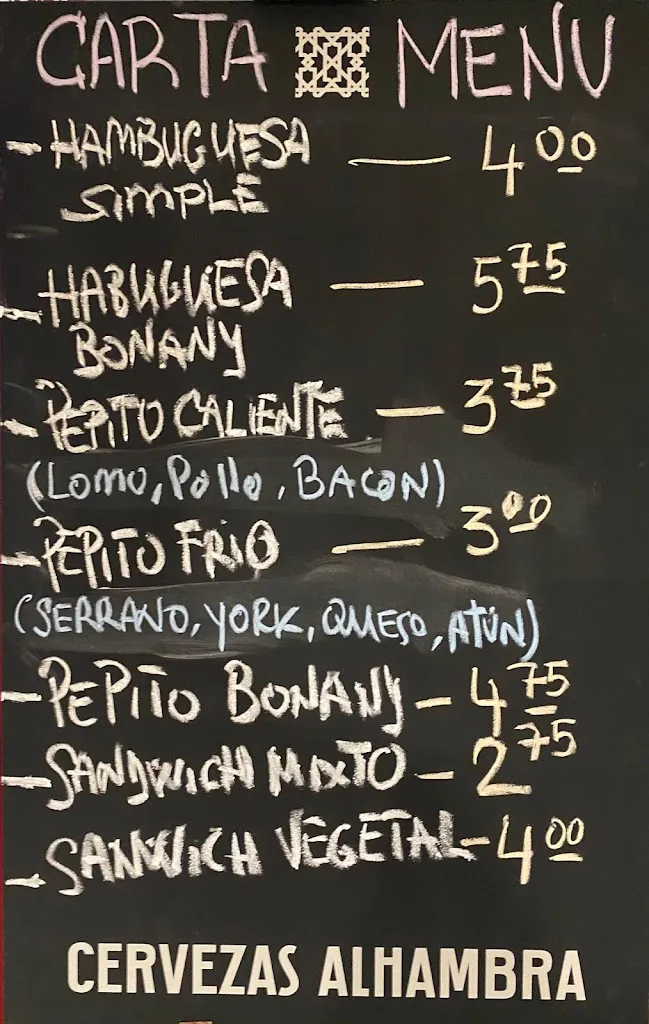 CARTA MENU
- HAMBUGUESA — 4 00
SIMPLE
- HABUGUESA — 5 75
BONANY
- PEPITO CALIENTE — 3 75
(LOMO, Pollo, BACON)
- PEPITO FRIO — 3 00
(SERRANO, YORK, QUESO, ATÚN)
- PEPITO BONANY - 4 75
- SANDWICH MIXTO - 2 75
- SANWICH VEGETAL - 4 00
CERVEZAS ALHAMBRA